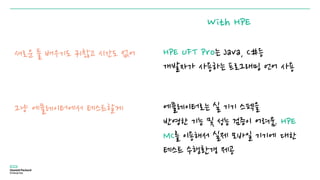 With HPE
새로운 툴 배우기도 귀찮고 시간도 없어
HPE UFT Pro는 Java, C#등
개발자가 사용하는 프로그래밍 언어 사용
그냥 에뮬레이터에서 테스트할게
에뮬레이터로는 실 기기 스펙을
반영한 기능 및 성능 검증이 어려움. HPE
MC를 이용해서 실제 모바일 기기에 대한
테스트 수행환경 제공
Hewlett Packard
Enterprise